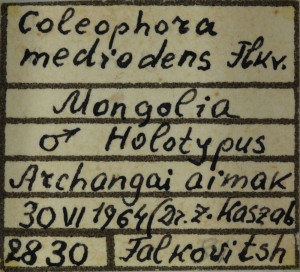 Coleophora
mediodens Flkv.
Mongolia
♂ Holotypus
Archangai aimak
30 VI 1964 (Dr. Z. Kaszab
2830 Falkovitsh